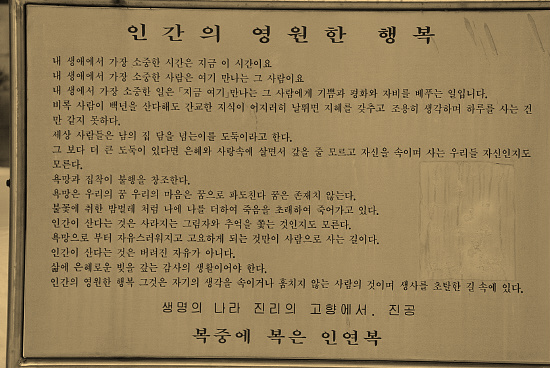 인간의 영원한 행복
내 생애에서 가장 소중한 시간은 지금 이 시간이요
내 생애에서 가장 소중한 사람은 여기 만나는 그 사람이요
내 생에서 가장 소중한 일은「지금 여기」만나는 그 사람에게 기쁨과 평화와 자비를 베푸는 일입니다.
비록 사람이 백년을 산다해도 간교한 지식이 어지러히 날뛰면 지혜를 갖추고 조용히 생각하며 하루를 사는 것
만 같지 못하다.
세상 사람들은 남의 집 담을 넘는이를 도둑이라고 한다.
그 보다 더 큰 도둑이 있다면 은혜와 사랑속에 살면서 갚을 줄 모르고 자신을 속이며 사는 우리들 자신인지도
모른다.
욕망과 집착이 불행을 창조한다.
욕망은 우리의 꿈 우리의 마음은 꿈으로 파도친다 꿈은 존재치 않는다.
불꽃에 취한 밤벌레 처럼 나에 나를 더하여 죽음을 초래하여 죽어가고 있다.
인간이 산다는 것은 사라지는 그림자와 추억을 쫓는 것인지도 모른다.
욕망으로 부터 자유스러워지고 고요하게 되는 것만이 사람으로 사는 길이다.
인간이 산다는 것은 버려진 자유가 아니다.
삶에 은혜로운 빚을 갚는 감사의 생활이어야 한다.
인간의 영원한 행복 그것은 자기의 생각을 속이거나 훔치지 않는 사람의 것이며 생사를 초탈한 길 속에 있다.
생명의 나라 진리의 고향에서. 진공
복중에 복은 인연복